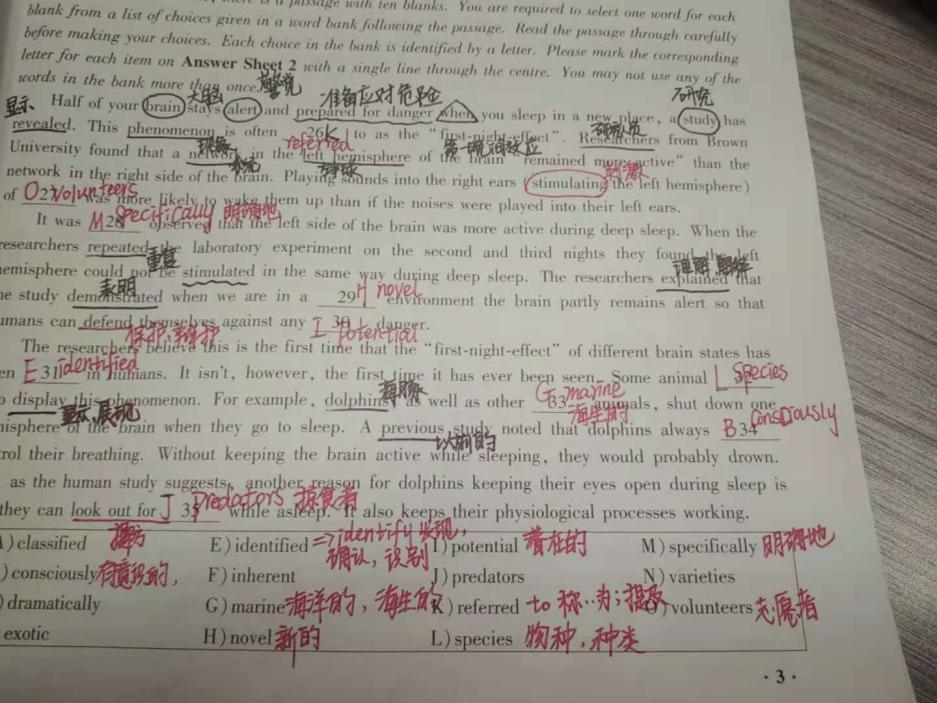 is a passage with ten blanks. You are required to select one word for each
blank from a list of choices given in a word bank following the passage. Read the passage through carefully
before making your choices. Each choice in the bank is identified by a letter. Please mark the corresponding
letter for each item on Answer Sheet 2 with a single line through the centre. You may not use any of the
words in the bank more than once.
大脑 警觉 准备应对危险 研究
显示 Half of your brain stays alert and prepared for danger when you sleep in a new place, a study has
revealed. This phenomenon is often 26 K to as the "first-night-effect". Researchers from Brown
现象 referred 第一晚效应 研究人员
University found that a network in the left hemisphere of the brain "remained more active" than the
半球 刺激
network in the right side of the brain. Playing sounds into the right ears (stimulating the left hemisphere)
of O 27 volunteers was more likely to wake them up than if the noises were played into their left ears.
It was M 28 specifically 明确地 observed that the left side of the brain was more active during deep sleep. When the
researchers repeated the laboratory experiment on the second and third nights they found the left
重复 理解
hemisphere could not be stimulated in the same way during deep sleep. The researchers explained that
表明
he study demonstrated when we are in a 29 H novel environment the brain partly remains alert so that
umans can defend themselves against any I 30 potential danger.
保护
The researchers believe this is the first time that the "first-night-effect" of different brain states has
en E 31 identified in humans. It isn't, however, the first time it has ever been seen. Some animal L species
o display this phenomenon. For example, dolphins as well as other G 33 marine animals, shut down one
显示,展现 海豚 海生的
misphere of the brain when they go to sleep. A previous study noted that dolphins always B 34 consciously
以前的
rol their breathing. Without keeping the brain active while sleeping, they would probably drown.
as the human study suggests, another reason for dolphins keeping their eyes open during sleep is
they can look out for J 35 predators 掠食者 while asleep. It also keeps their physiological processes working.
) classified
E) identified ⇒ identify 发现, 确认, 识别
I) potential 潜在的
M) specifically 明确地
) consciously 有意识的,
F) inherent
J) predators
N) varieties
) dramatically
G) marine 海洋的, 海生的
K) referred to 称..为; 提及
O) volunteers 志愿者
exotic
H) novel 新的
L) species 物种, 种类
· 3 ·